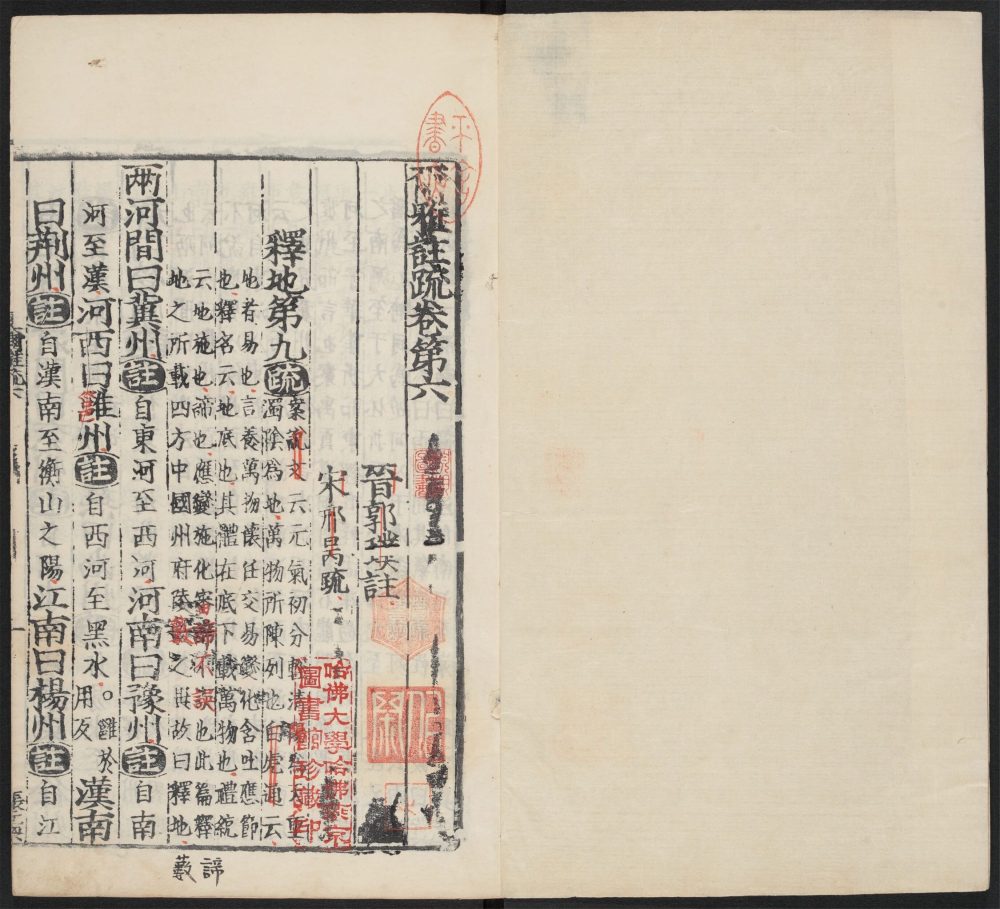 爾雅註疏卷第六
晉郭璞註
宋邢昺疏
釋地第九疏案說文云元氣初分輕清陽為天重
濁陰為地萬物所陳列也白虎通云
地者易也言養萬物懷任交易變化含吐應節
也釋名云地底也其體在底下載萬物也禮統
云地施也諦也應變施化審諦不誤也此篇釋
地之所載四方中國州府陵藪之異故曰釋地
兩河間曰冀州註自東河至西河河南曰豫州註自南
河至漢河西曰雝州註自西河至黑水。雝於用反漢南
曰荆州註自漢南至衡山之陽江南曰楊州註自江
諦
藪
哈佛大學哈佛燕京
圖書館珍藏印